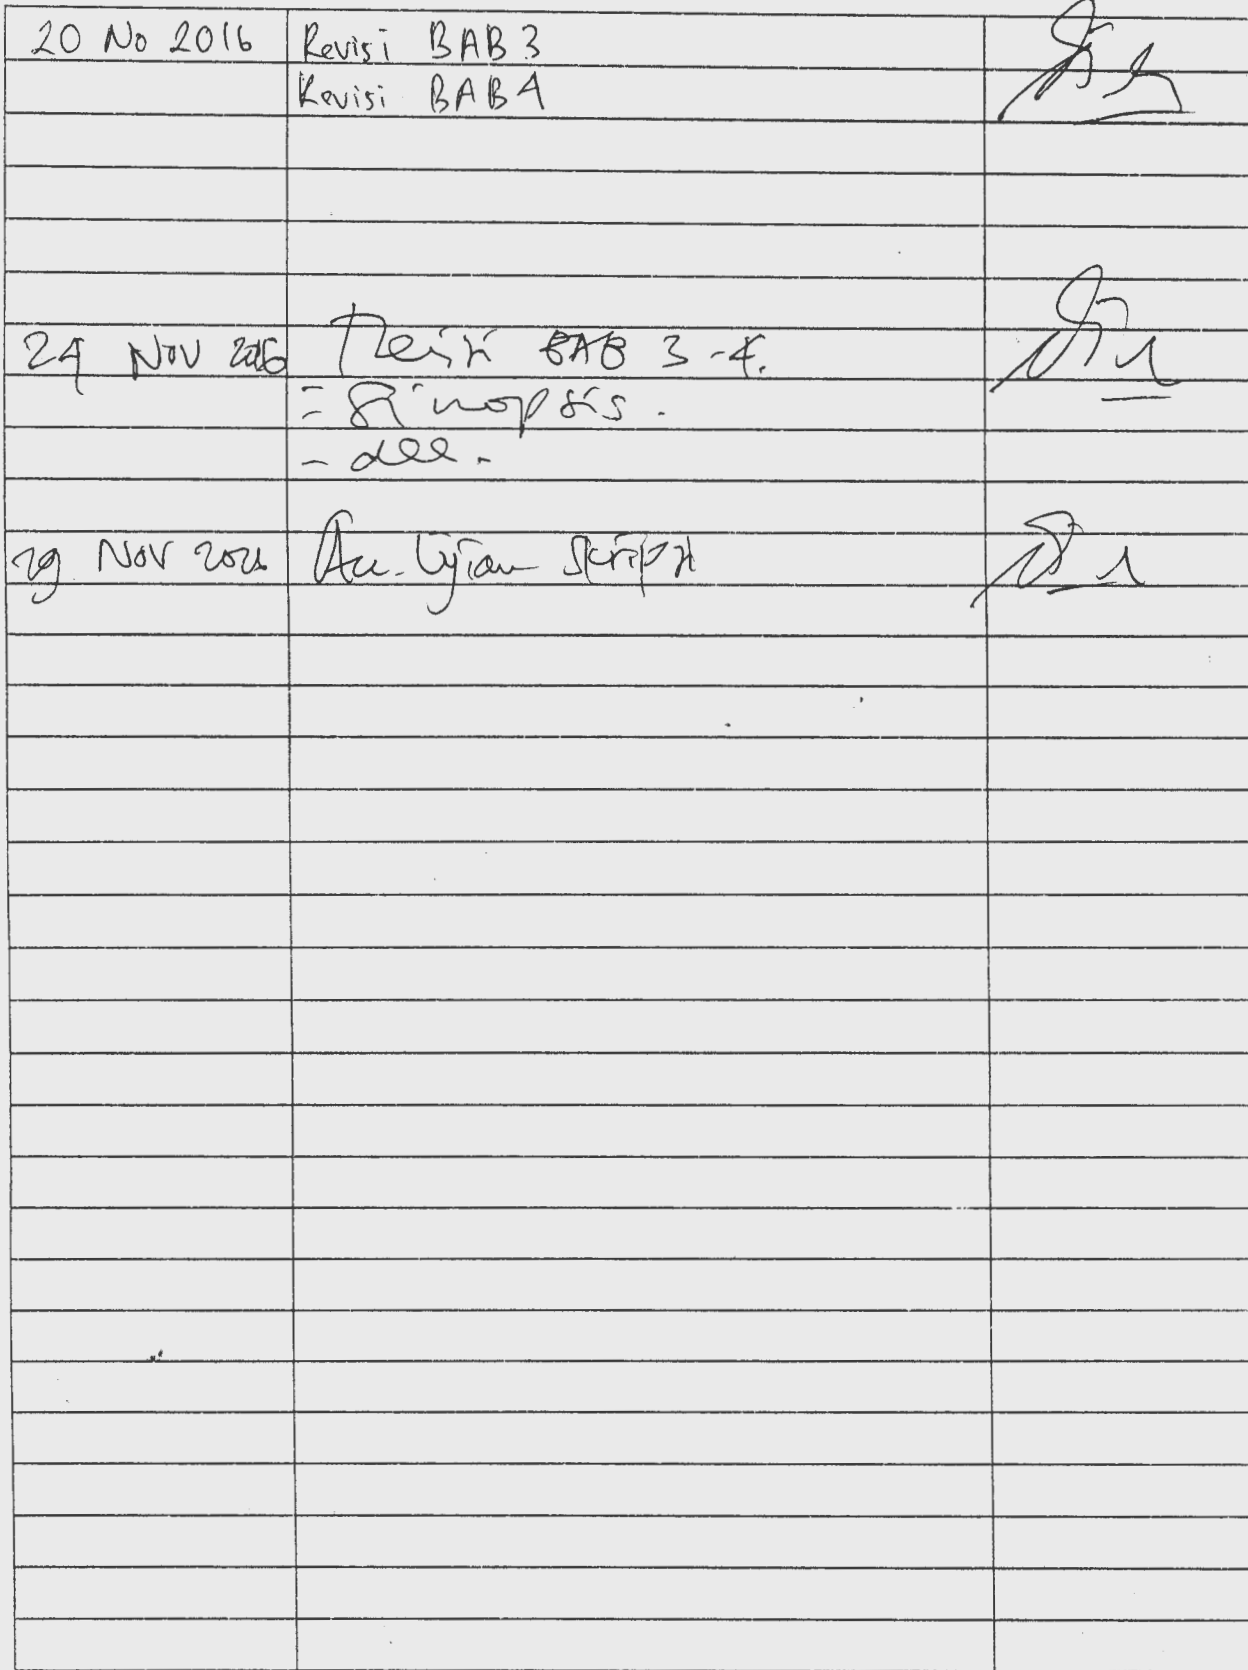 20 No 2016 Revisi BAB 3
Revisi BAB 4
24 Nov 2016 Revisi BAB 3-4.
- Sinopsis.
- dll.
29 Nov Acc Ujian Skripsi